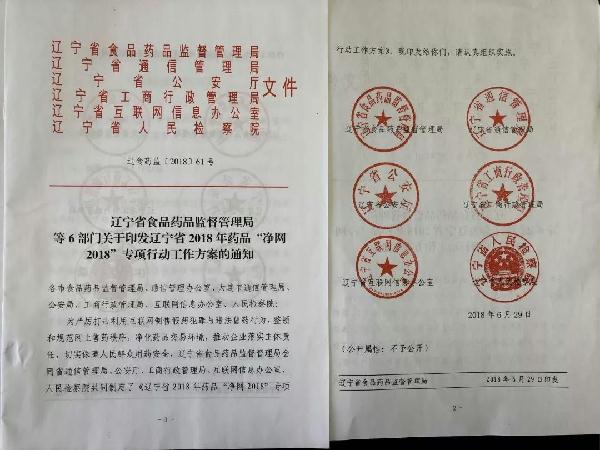 辽宁省食品药品监督管理局
辽宁省通信管理局
辽宁省公安厅
辽宁省工商行政管理局
辽宁省互联网信息办公室
辽宁省人民检察院
文件
辽食药监〔2018〕61号
辽宁省食品药品监督管理局
等6部门关于印发辽宁省2018年药品“净网
2018”专项行动工作方案的通知
各市食品药品监督管理局、通信管理办公室、大连市通信管理局、
公安局、工商行政管理局、互联网信息办公室、人民检察院：
为严厉打击利用互联网制售假药犯罪与违法售药行为，整顿
和规范网上售药秩序，净化药品交易环境，推动企业落实主体责
任，切实保障人民群众用药安全，辽宁省食品药品监督管理局会
同省通信管理局、公安厅、工商行政管理局、互联网信息办公室、
人民检察院共同制定了《辽宁省2018年药品“净网2018”专项
行动工作方案》，现印发给你们，请认真组织实施。
辽宁省食品药品监督管理局
辽宁省通信管理局
辽宁省公安厅
辽宁省工商行政管理局
辽宁省互联网信息办公室
辽宁省人民检察院
2018年6月29日
（公开属性：不予公开）
辽宁省食品药品监督管理局
2018年6月29日印发
- 2 -